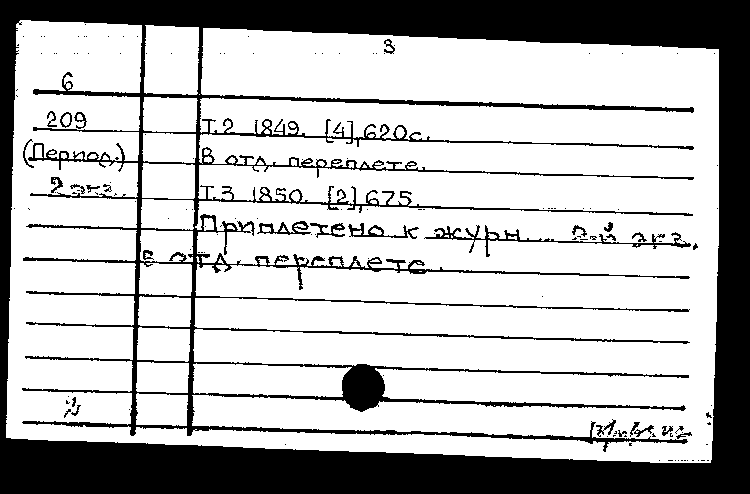 3
6
209 Т.2 1849. [4],620с.
(Период.) В отд. переплете.
2 экз. Т.3 1850. [2],675.
Приплетено к журн. 2-й экз.
в отд. переплете.